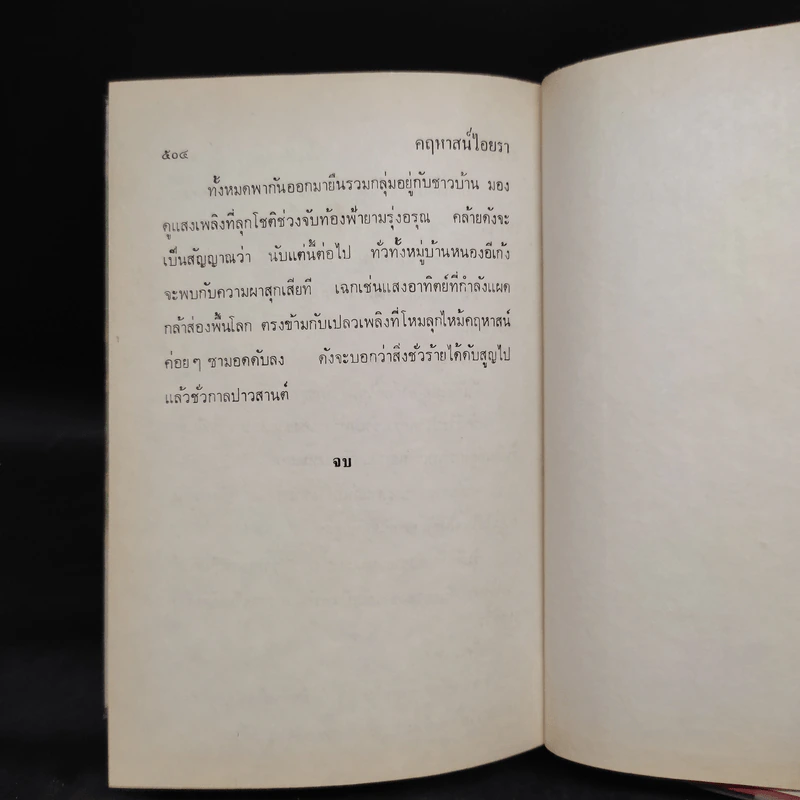 ๕๐๔ คฤหาสน์ไอยรา
ทั้งหมดพากันออกมายืนรวมกลุ่มอยู่กับชาวบ้าน มอง
ดูแสงเพลิงที่ลุกโชติช่วงจับท้องฟ้ายามรุ่งอรุณ คล้ายดังจะ
เป็นสัญญาณว่า นับแต่นี้ต่อไป ทั่วทั้งหมู่บ้านหนองอีเก้ง
จะพบกับความผาสุกเสียที เฉกเช่นแสงอาทิตย์ที่กำลังแผด
กล้าส่องพื้นโลก ตรงข้ามกับเปลวเพลิงที่โหมลุกไหม้คฤหาสน์
ค่อยๆ ซามอดดับลง ดังจะบอกว่าสิ่งชั่วร้ายได้ดับสูญไป
แล้วชั่วกาลปาวสานต์
จบ